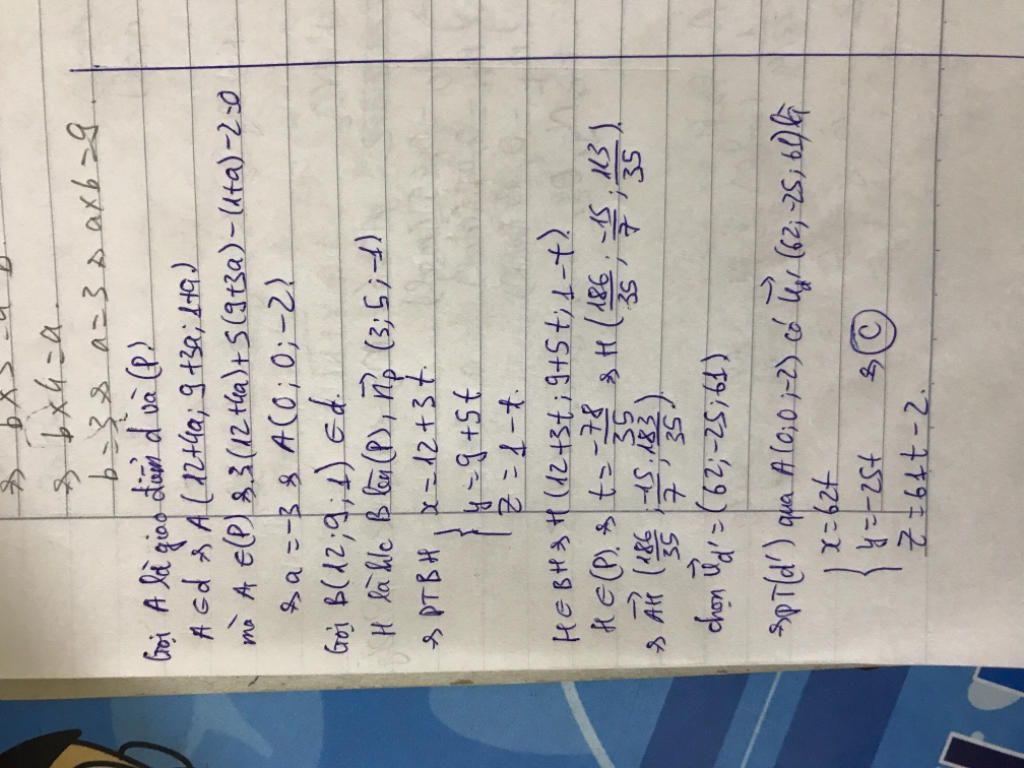 b × 4 = a
b = 3 a = 3 a×b = 9
Gọi A là giao điểm d và (P)
A ∈ d => A (12+4a; 9+3a; 1+a)
mà A ∈ (P) => 3(12+4a)+5(9+3a)-(1+a)-2=0
=> a = -3 => A(0; 0; -2)
Gọi B(12; 9; 1) ∈ d.
H là hc B lên (P), n⃗p (3; 5; -1)
=> PTBH { x = 12 + 3t
y = 9 + 5t
z = 1 - t.
H ∈ BH => H (12+3t; 9+5t; 1-t)
H ∈ (P) => t = -78/35 => H (186/35; -15/7; 113/35)
=> AH⃗ (186/35; -15/7; 183/35)
chọn u⃗d' = (62; -25; 61)
=> PT(d') qua A(0; 0; -2) có u⃗d' (62; -25; 61) là
{ x = 62t
y = -25t => C
z = 61t - 2.